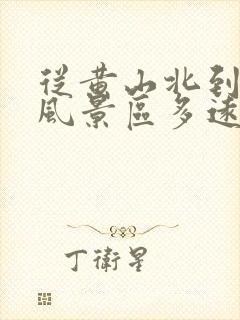 從黄山北到
風景區多遠
丁衛星